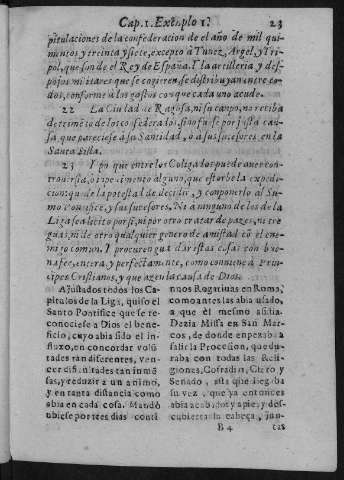 Cap. 1. Exemplo 1? 23
pitulaciones de la confederacion de el año de mil qui-
nientos y treinta y siete, excepto à Tunez, Argel, y Tri-
pol, que son de el Rey de España. Y la artilleria y des-
pojos militares que se cogieren se distribuyan entre to-
dos, conforme à los gastos con que cada vno acude.
22 La Ciudad de Ragosa, ni su campo, no reciba
detrimẽto de los cõfederados, sino fuesse por justa cau-
sa que pareciese à su Santidad, ò à sus successores, en la
Santa Silla.
23 Y por que entre los Coligados puede aver con-
trouersia, ò impedimento alguno, que estorbe la expedi-
cion: quede la potestad de decidir, y conponerlo al Su-
mo Pontifice, y sus sucesores. Ni à ninguno de los de la
Liga sea licito por si, ni por otro tratar de pazes, ni tre-
guas, ni de otro qualquier genero de amistad cõ el ene-
migo comun. Y procuren guardar estas cosas con bue-
na fee, entera, y perfectamente, como conuiene à Prin-
cipes Cristianos, y que azen la causa de Dios.
Ajustados todos los Ca-
pitulos de la Liga, quiso el
Santo Pontifice que se re-
conociese à Dios el bene-
ficio, cuyo abia sido el in-
fluxo, en concordar volũ-
tades tan diferentes, ven-
cer dificultades tan inmẽ-
sas, y reduzir a un animo,
y en tanta distancia como
abia en cada cosa. Mandò
ubiese por tres dias conti
nuos Rogatiuas en Roma,
como antes las abia usado,
a que èl mesmo asistia.
Dezia Missa en San Mar-
cos, de donde enpezaba a
salir la Procesion, que du-
raba con todas las Reli-
giones, Cofradias, Clero y
Senado, asta que llegaba
su vez, que ya entonces
abia acabado; y a pie, y des-
cubierta la cabeça, jun-
B 4 tas